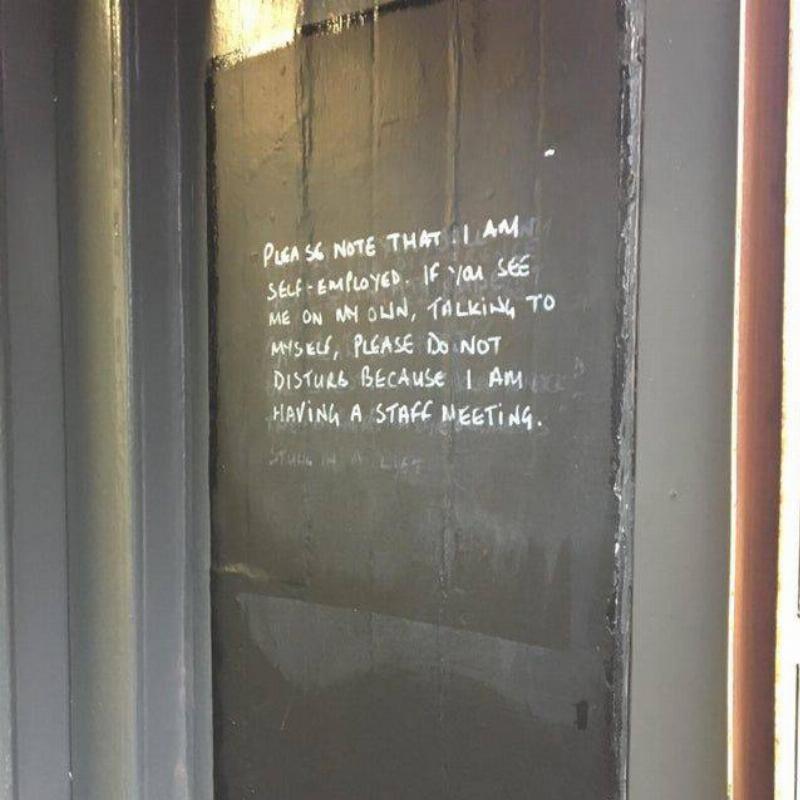 PLEASE NOTE THAT I AM
SELF-EMPLOYED. IF YOU SEE
ME ON MY OWN, TALKING TO
MYSELF, PLEASE DO NOT
DISTURB BECAUSE I AM
HAVING A STAFF MEETING.
IN A